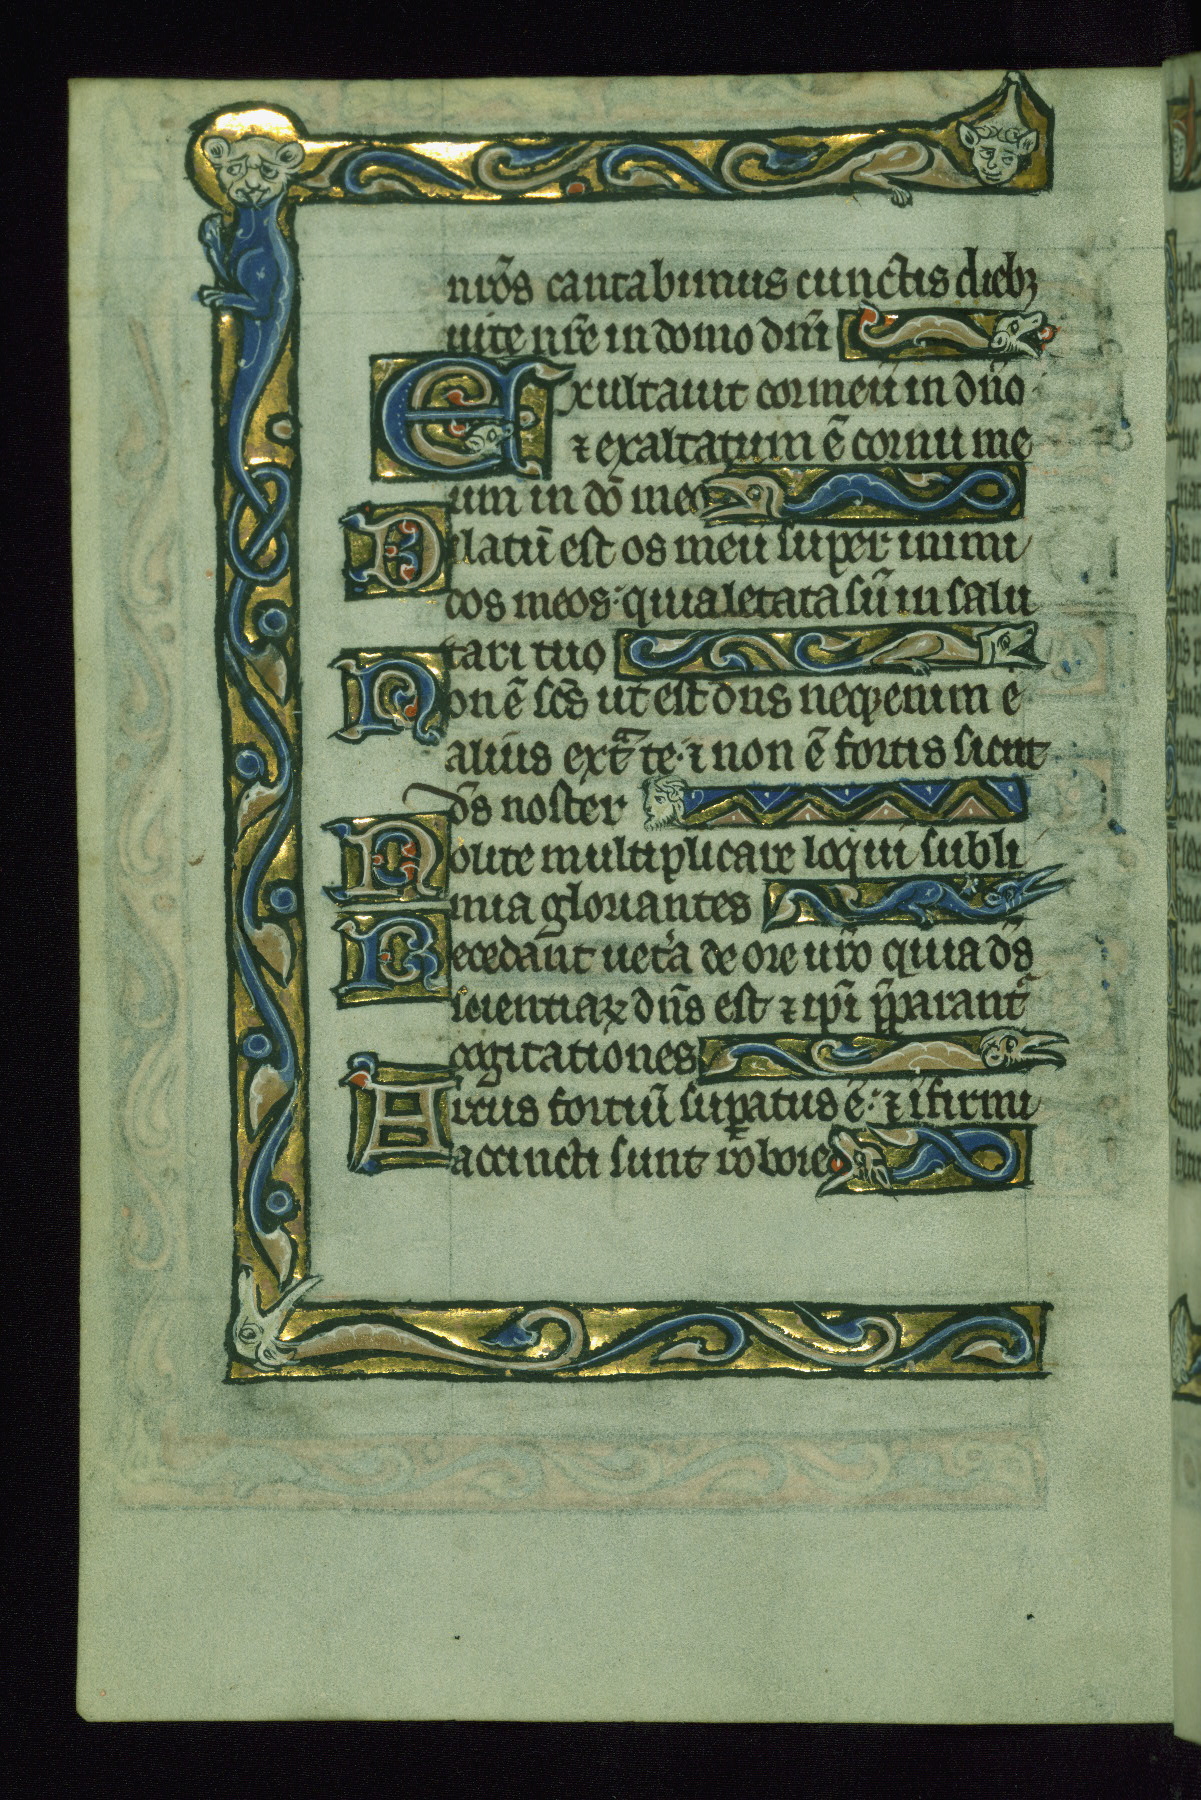 nr̃os cantabimus cunctis dieb3
uite nr̃e in domo dñi
Exultauit cor meũ in dño
⁊ exaltatum ẽ cornu me
um in dõ meo
Dilatũ est os meũ super inimi
cos meos: quia letata sũ in salu
tari tuo
Non ẽ sc̃s ut est dñs neqꝫ enim ẽ
alius extᵃ te· ⁊ non ẽ fortis sicut
d̃s noster
Nolite multiplicare loqui subli
mia gloriantes
Recedant uetᵃa de ore ur̃o quia d̃s
scientiaꝝ dñs est ⁊ ip̃i p̃parantᵃ
cogitationes
Arcus fortiũ suꝑatus ẽ: ⁊ ĩfirmi
accincti sunt robore